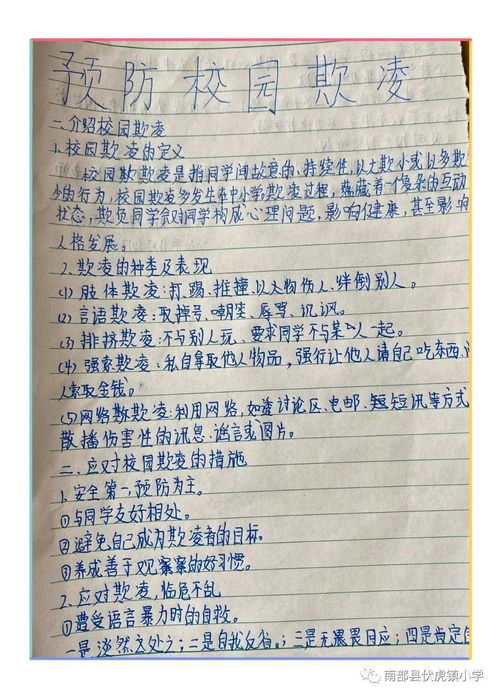 预防校园欺凌
一、介绍校园欺凌
1、校园欺凌的定义
校园欺凌是指同学间故意的、持续性,以大欺小或以多欺
少的行为,校园欺凌多发生在中小学,欺凌过程,蕴藏着一个复杂的互动
状态,欺负同学会对同学构成心理问题,影响健康,甚至影响
人格发展。
2、欺凌的种类及表现
(1)肢体欺凌:打、踢、推撞、以人物伤人、绊倒别人。
(2)言语欺凌:取绰号、嘲笑、辱骂、讥讽。
(3)排挤欺凌:不与别人玩、要求同学不与某人一起。
(4)强索欺凌:私自拿取他人物品,强行让他人请自己吃东西、
人索取金钱。
(5)网络欺凌:利用网络,如讨论区、电邮、短短讯等方式
散播伤害性的讯息、谣言或图片。
二、应对校园欺凌的措施
1、安全第一,预防为主。
①与同学友好相处。
②避免自己成为欺凌者的目标。
③养成善于观察的好习惯。
2、应对欺凌,临危不乱
①遭受语言暴力时的自救。
一是淡然处之;二是自我反省。;三是无畏回应;四是肯定
南部县伏虎镇小学